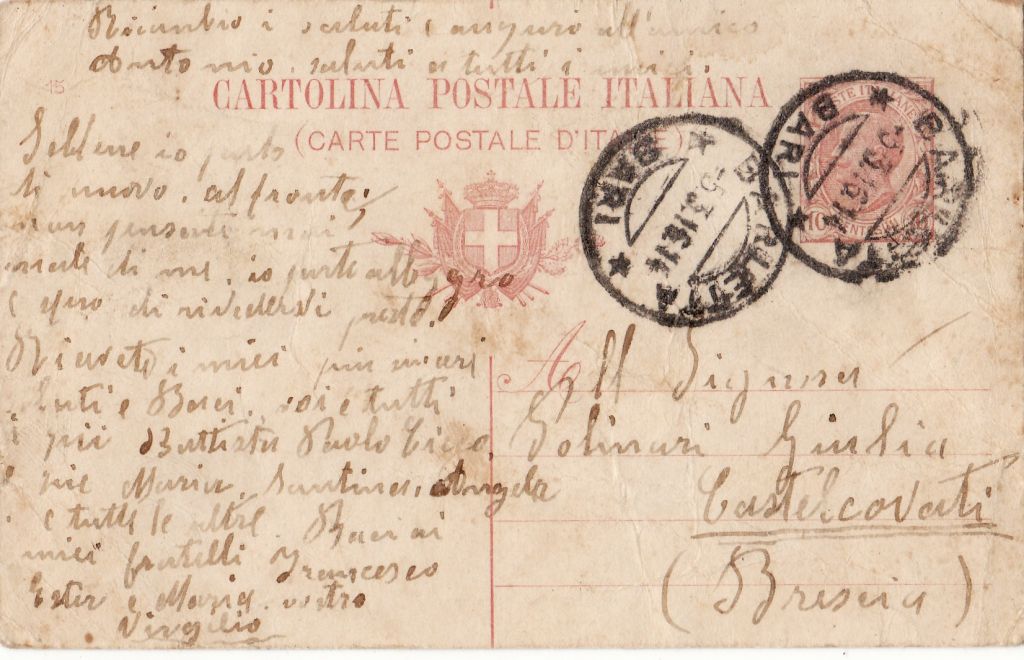 Ricambio i saluti e auguri all'amico
Antonio. saluti a tutti i miei.
15
CARTOLINA POSTALE ITALIANA
(CARTE POSTALE D'ITALIE)
Sebbene io parto
di nuovo. al fronte,
non pensate mai,
male di me. io parto allegro
e spero di rivedervi presto.
Ricevete i miei più cari
saluti e Baci. voi e tutti
Battista Paolo
zie Maria. Santina. Angela
e tutte le altre Baci ai
miei fratelli Francesco
Ester e Maria. vostro
Virgilio
BARLETTA
★ BARI ★
-5.3.16.14
BARLETTA
★ BARI ★
-5.3.16.14
POSTE ITALIANE
10
A
All Signora
Molinari Giulia
Castelcovati
(Brescia)